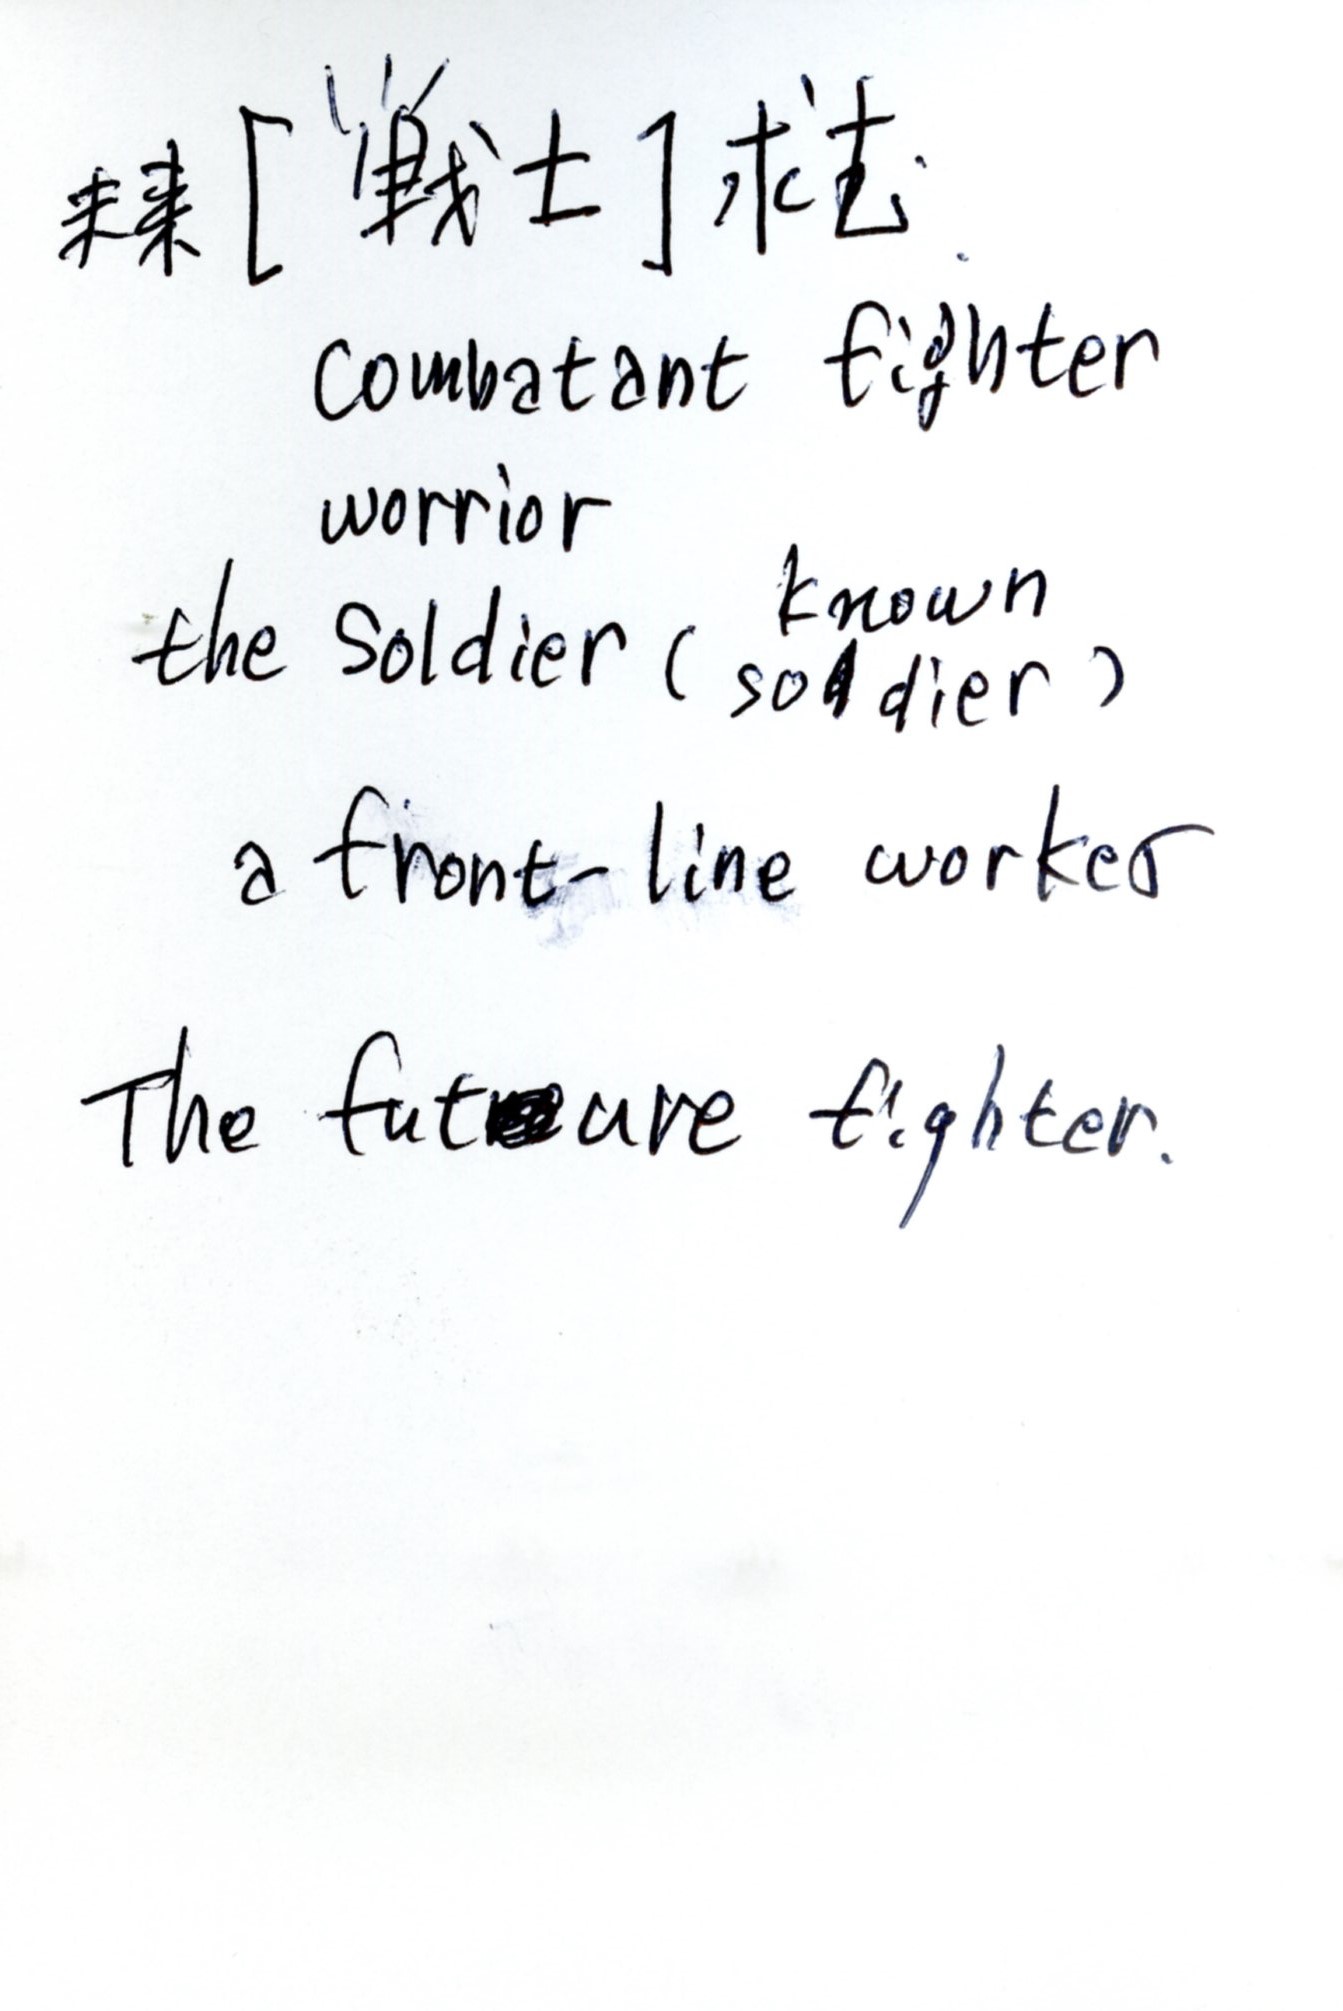 未来[戦士]求む.
combatant fighter
worrior
the Soldier (known soldier)
a front-line worker
The future fighter.